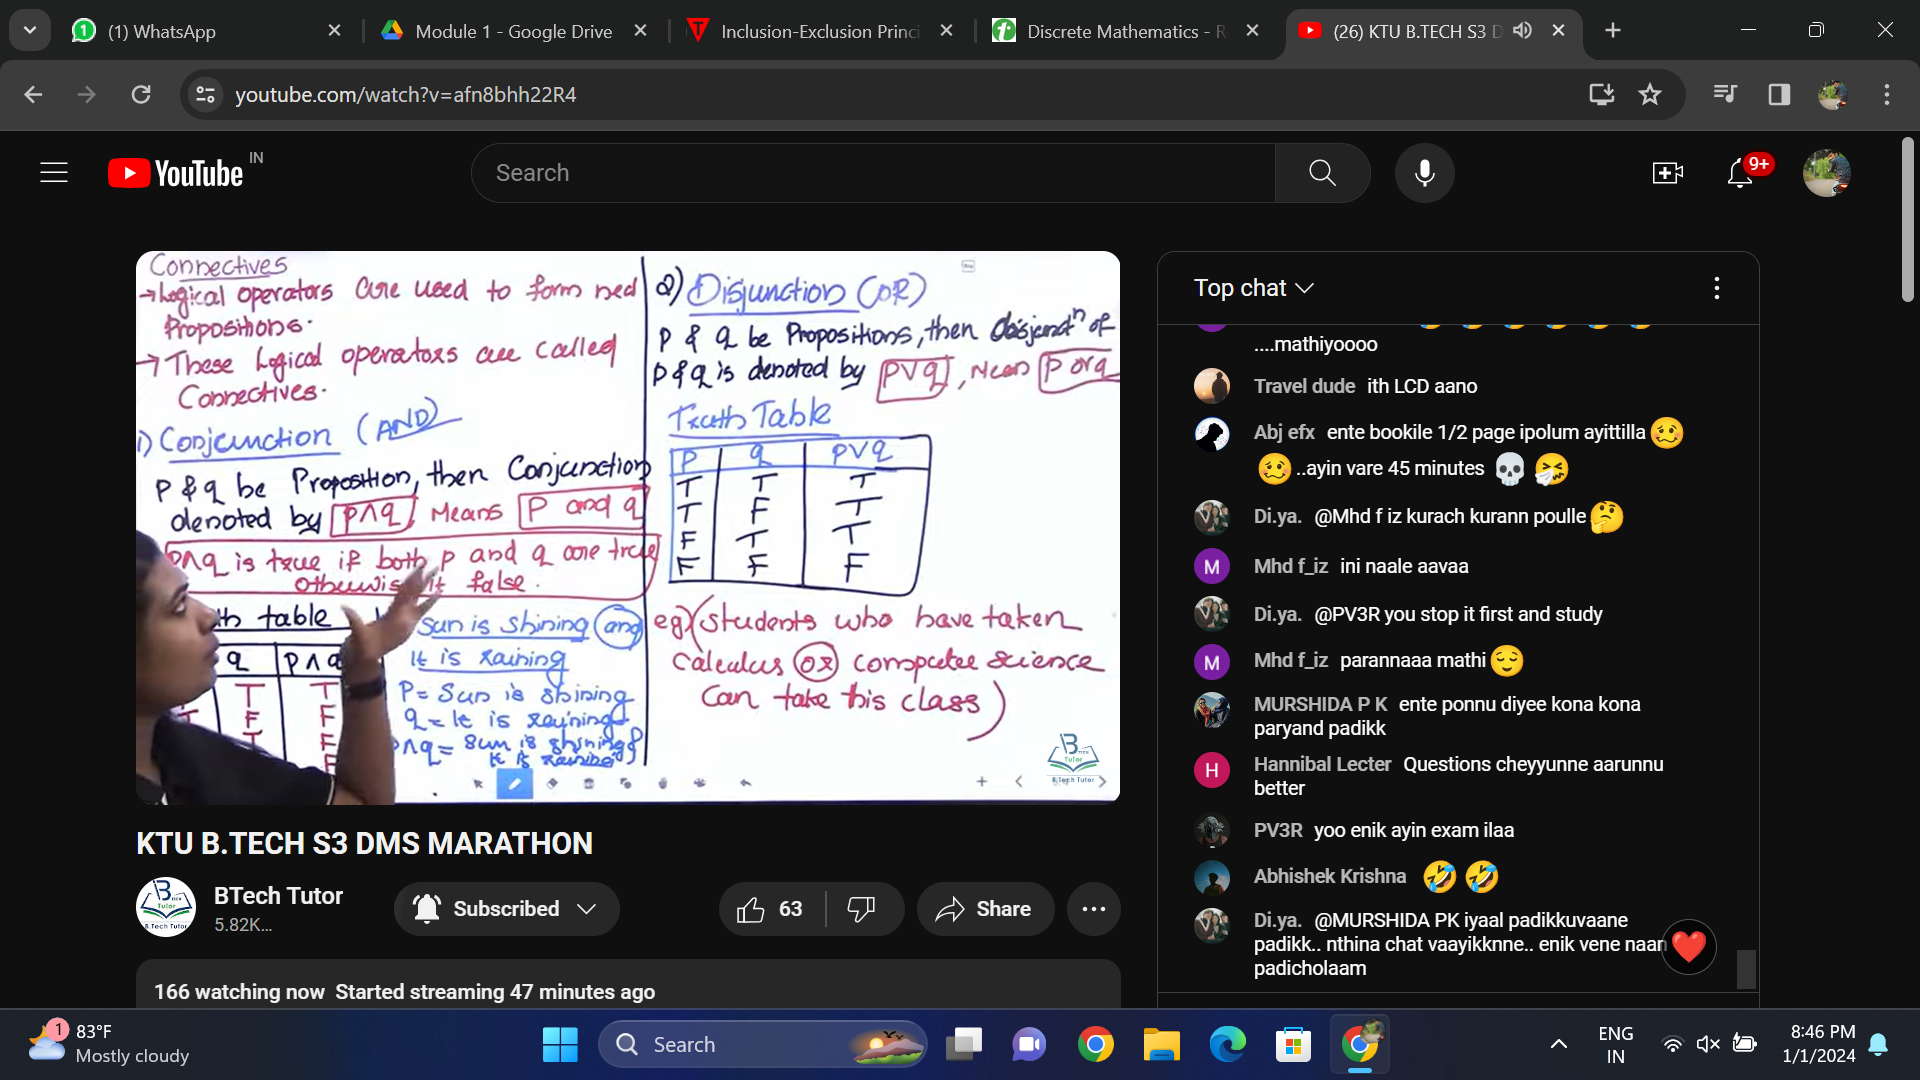 (1) WhatsApp
Module 1 - Google Drive
Inclusion-Exclusion Princi
Discrete Mathematics - R
(26) KTU B.TECH S3 D
youtube.com/watch?v=afn8bhh22R4
YouTube IN
Search
9+
Connectives
→ Logical operators are used to form ned
Propositions.
→ These Logical operators are called
Connectives.
1) Conjunction (AND)
P & q be Proposition, then Conjunction
denoted by P∧q, Means P and q
P∧q is true if both p and q are true
otherwise it false.
th table
q P∧q
T T
F F
T F
F
Sun is shining and
It is raining
P = Sun is shining
q = It is raining
P∧q = Sun is shining &
it is raining
2) Disjunction (OR)
P & q be Propositions, then disjunctn of
P & q is denoted by P∨q, Mean P or q
Truth Table
P q P∨q
T T T
T F T
F T T
F F F
eg) (Students who have taken
Calculus or computer science
can take this class)
B.Tech Tutor
KTU B.TECH S3 DMS MARATHON
BTech Tutor
5.82K...
Subscribed
63
Share
166 watching now Started streaming 47 minutes ago
Top chat
....mathiyoooo
Travel dude ith LCD aano
Abj efx ente bookile 1/2 page ipolum ayittilla🥴
🥴..ayin vare 45 minutes 💀🤧
Di.ya. @Mhd f iz kurach kurann poulle🤔
M Mhd f_iz ini naale aavaa
Di.ya. @PV3R you stop it first and study
M Mhd f_iz parannaaa mathi😌
MURSHIDA P K ente ponnu diyee kona kona
paryand padikk
H Hannibal Lecter Questions cheyyunne aarunnu
better
PV3R yoo enik ayin exam ilaa
Abhishek Krishna 🤣🤣
Di.ya. @MURSHIDA PK iyaal padikkuvaane
padikk.. nthina chat vaayikknne.. enik vene naan
padicholaam
1
83°F
Mostly cloudy
Search
ENG
IN
8:46 PM
1/1/2024